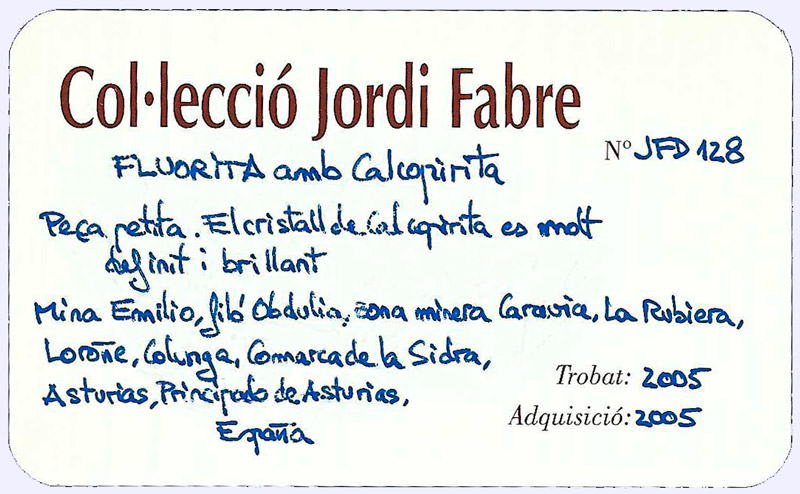 Col·lecció Jordi Fabre
Nº JFD 128
FLUORITA amb Calcopirita
Peça petita. El cristall de Calcopirita es molt
definit i brillant
Mina Emilio, filó Obdulia, zona minera Caravia, La Rubiera,
Loroñe, Colunga, Comarca de la Sidra,
Asturias, Principado de Asturias,
España
Trobat: 2005
Adquisició: 2005